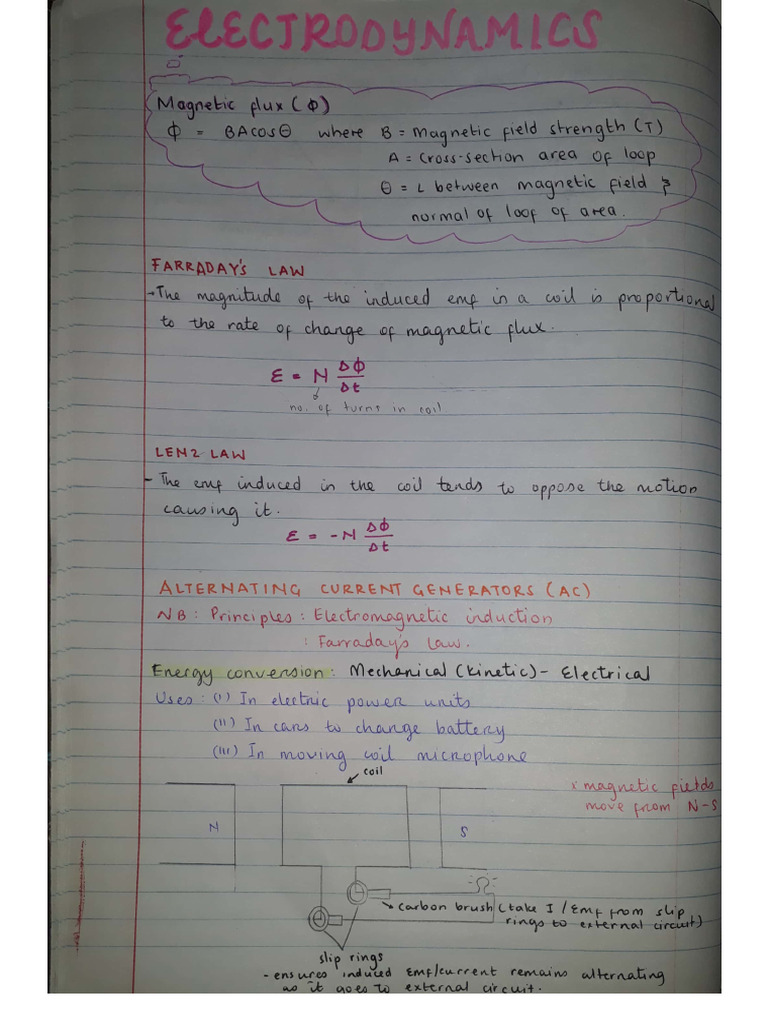 ELECTRODYNAMICS
Magnetic flux (Φ)
Φ = BAcosθ where B = Magnetic field strength (T)
A = Cross-section area of loop
θ = ∠ between magnetic field &
normal of loof of area.
FARRADAY'S LAW
- The magnitude of the induced emf in a coil is proportional
to the rate of change of magnetic flux.
ε = N ΔΦ/Δt
no. of turns in coil
LENZ LAW
- The emf induced in the coil tends to oppose the motion
causing it.
ε = -N ΔΦ/Δt
ALTERNATING CURRENT GENERATORS (AC)
NB: Principles: Electromagnetic induction
: Farraday's Law.
Energy conversion: Mechanical (kinetic) - Electrical
Uses: (i) In electric power units
(ii) In cars to change battery
(iii) In moving coil microphone
coil
x magnetic fields
move from N-S
N
S
Carbon brush (take I / Emf from slip
rings to external circuit)
slip rings
- ensures induced Emf/current remains alternating
as it goes to external circuit.